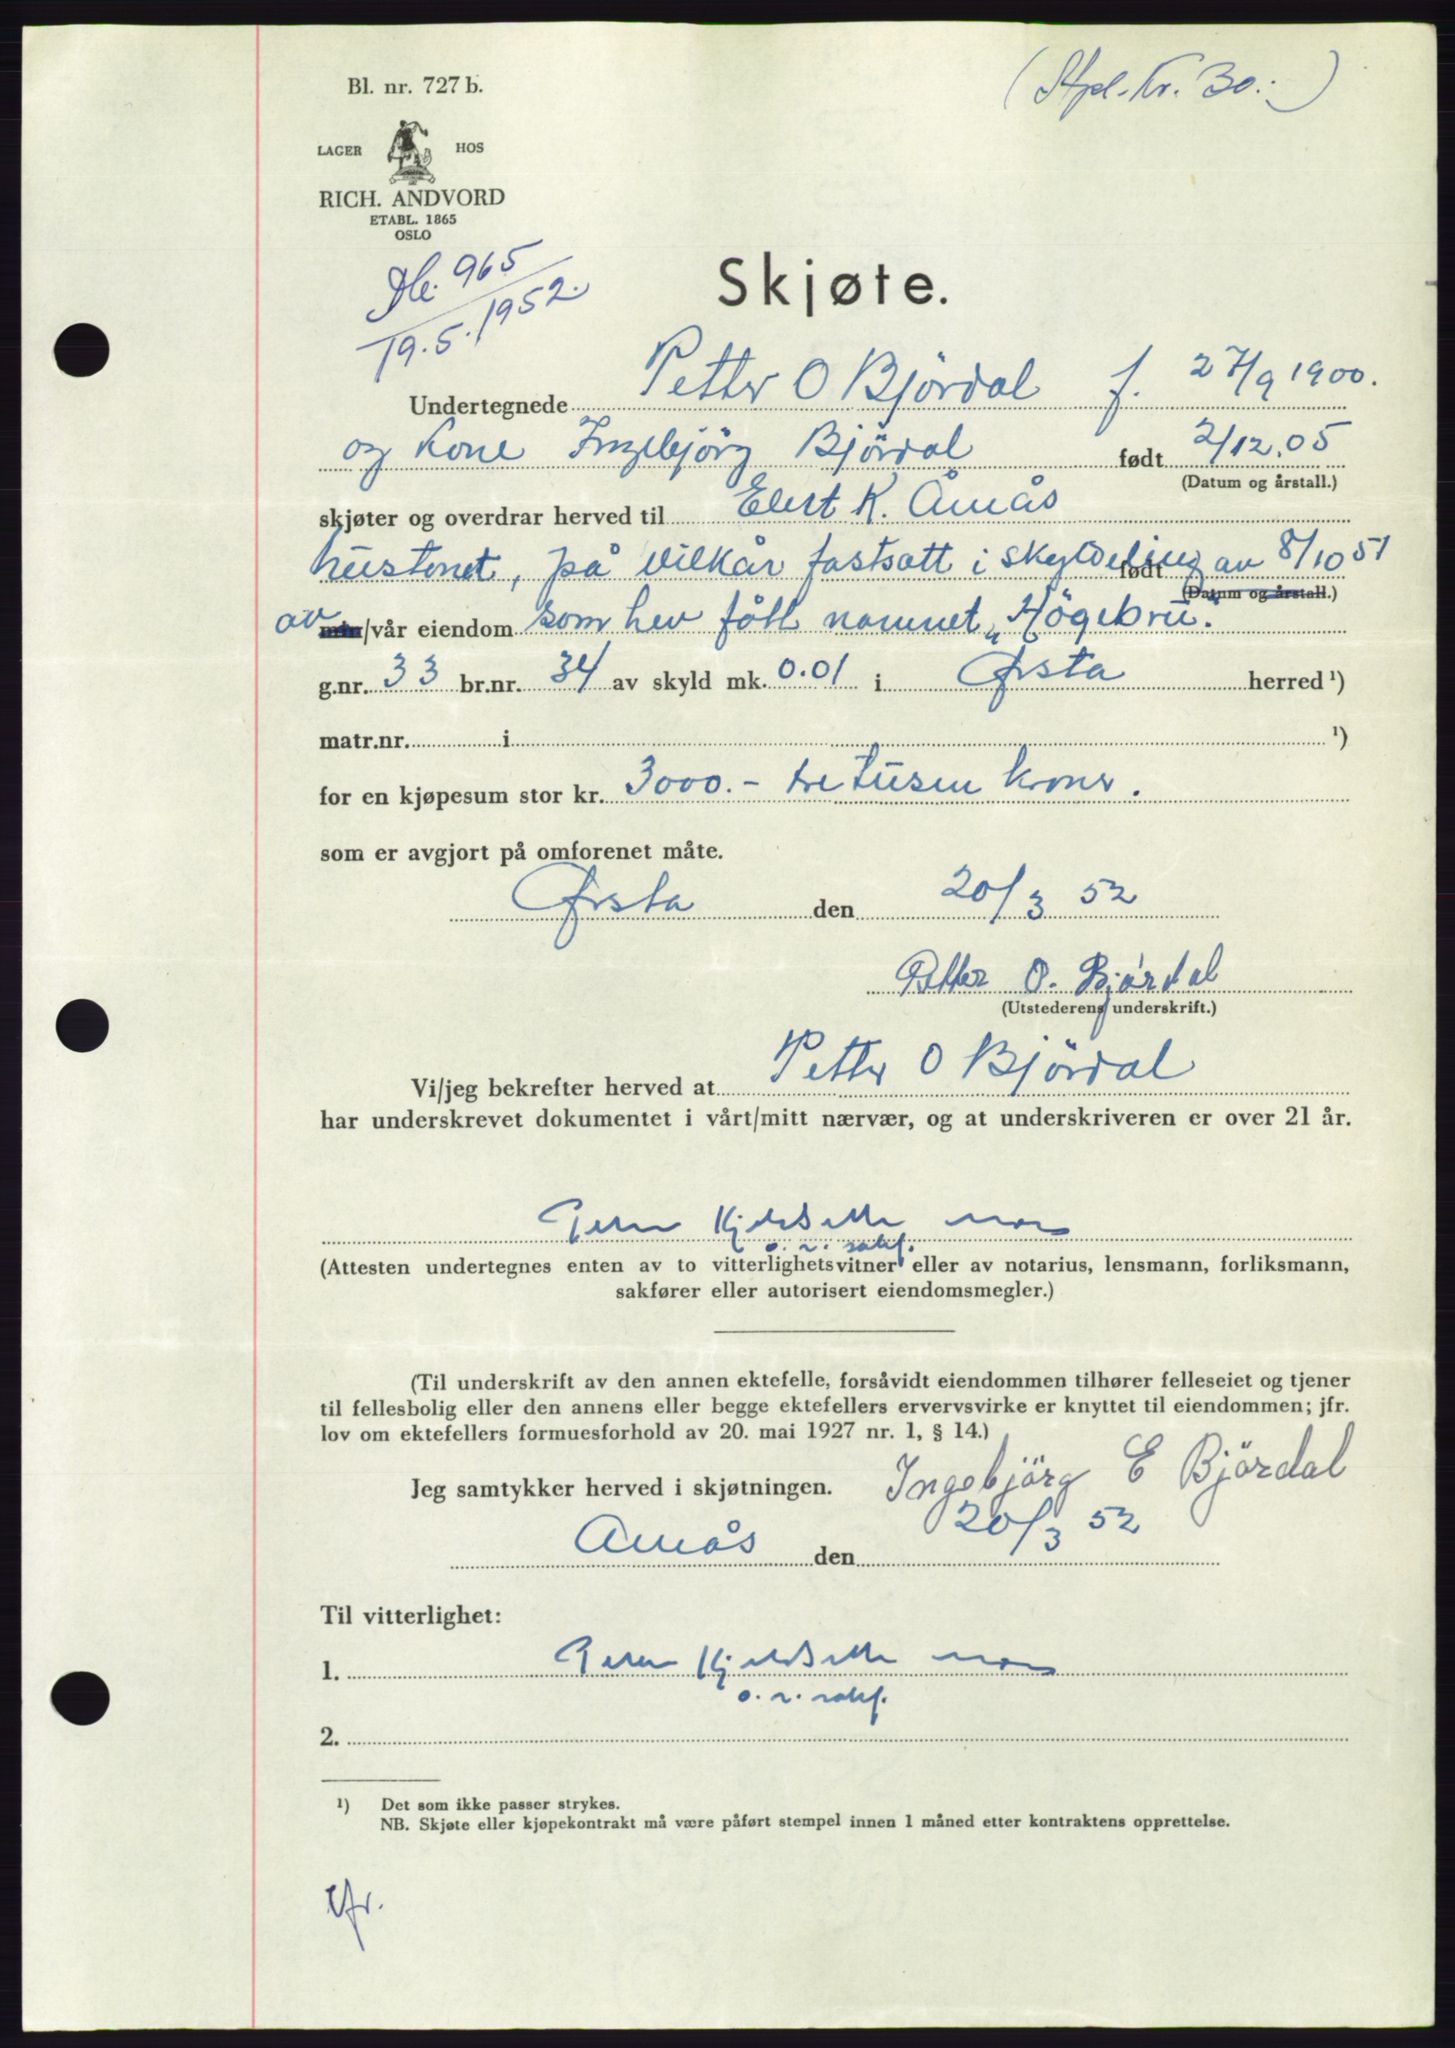 (Stpl. kr. 30.-)
Bl. nr. 727 b.
LAGER HOS
RICH. ANDVORD
ETABL. 1865
OSLO
965
19.5.1952.
Skjøte.
Undertegnede Petter O Björdal f. 27/9 1900.
og kone Ingebjörg Björdal født 2/12.05
(Datum og årstall.)
skjøter og overdrar herved til Elert K. Åmås
hustomt, på vilkår fastsatt i skylddeling av 8/10 51
født
(Datum og årstall.)
av min/vår eiendom som hev fått namnet „Högebru".
g.nr. 33 br.nr. 34 av skyld mk. 0.01 i Ørsta herred ¹)
matr.nr. i ¹)
for en kjøpesum stor kr. 3000.- tre tusen kroner.
som er avgjort på omforenet måte.
Ørsta den 20/3 52
Petter O. Bjørdal
(Utstederens underskrift.)
Vi/jeg bekrefter herved at Petter O Björdal
har underskrevet dokumentet i vårt/mitt nærvær, og at underskriveren er over 21 år.
o. r. sakf.
(Attesten undertegnes enten av to vitterlighetsvitner eller av notarius, lensmann, forliksmann,
sakfører eller autorisert eiendomsmegler.)
(Til underskrift av den annen ektefelle, forsåvidt eiendommen tilhører felleseiet og tjener
til fellesbolig eller den annens eller begge ektefellers ervervsvirke er knyttet til eiendommen; jfr.
lov om ektefellers formuesforhold av 20. mai 1927 nr. 1, § 14.)
Jeg samtykker herved i skjøtningen. Ingebjörg E Björdal
Åmås den 20/3 52
Til vitterlighet:
1.
o. r. sakf.
2.
¹) Det som ikke passer strykes.
NB. Skjøte eller kjøpekontrakt må være påført stempel innen 1 måned etter kontraktens opprettelse.